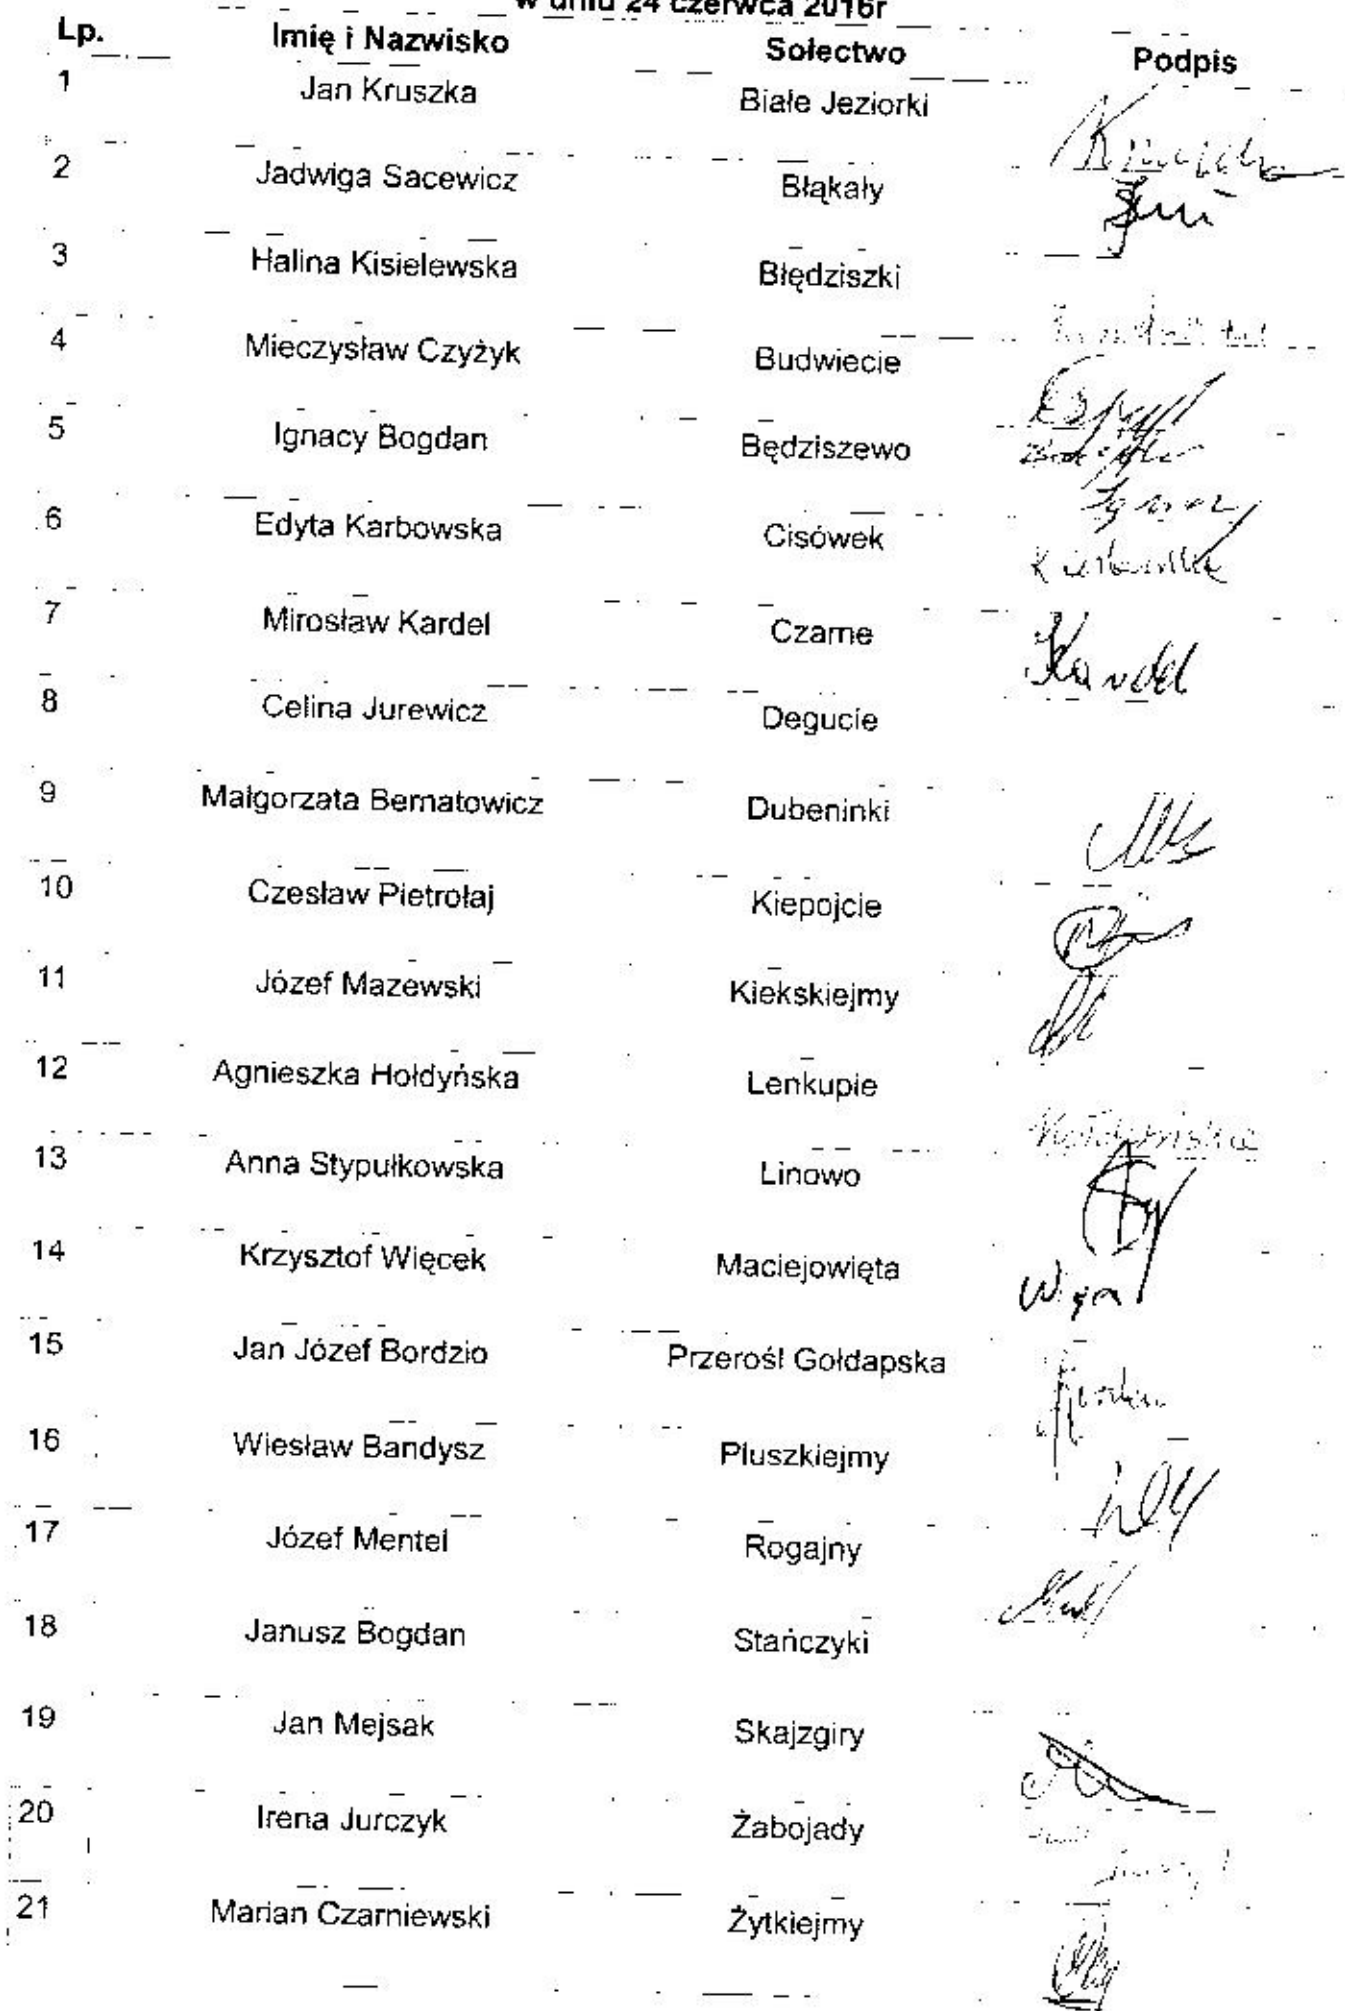 w dniu 24 czerwca 2016r
Lp. Imię i Nazwisko Sołectwo Podpis
1 Jan Kruszka Białe Jeziorki
2 Jadwiga Sacewicz Błąkały
3 Halina Kisielewska Błędziszki
4 Mieczysław Czyżyk Budwiecie
5 Ignacy Bogdan Będziszewo
6 Edyta Karbowska Cisówek Ignacy
7 Mirosław Kardel Czarne Kardel
8 Celina Jurewicz Degucie
9 Małgorzata Bernatowicz Dubeninki
10 Czesław Pietrołaj Kiepojcie
11 Józef Mazewski Kiekskiejmy
12 Agnieszka Hołdyńska Lenkupie Hołdyńska
13 Anna Stypułkowska Linowo
14 Krzysztof Więcek Maciejowięta
15 Jan Józef Bordzio Przerośl Gołdapska
16 Wiesław Bandysz Pluszkiejmy
17 Józef Mentel Rogajny
18 Janusz Bogdan Stańczyki
19 Jan Mejsak Skajzgiry
20 Irena Jurczyk Żabojady
21 Marian Czarniewski Żytkiejmy